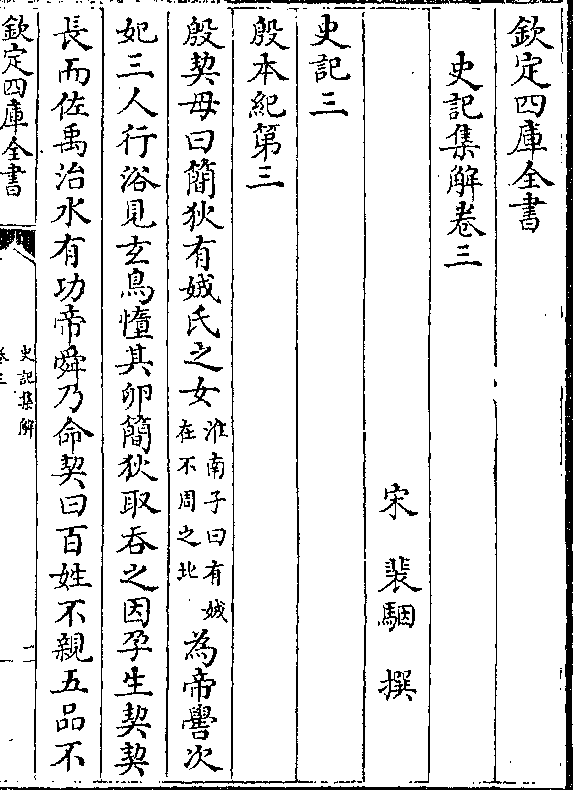 欽定四庫全書
史記集解卷三
宋 裴駰 撰
史記三
殷本紀第三
殷契母曰簡狄有娀氏之女
淮南子曰有娀
在不周之北
為帝嚳次
妃三人行浴見玄鳥墮其卵簡狄取吞之因孕生契契
長而佐禹治水有功帝舜乃命契曰百姓不親五品不
欽定四庫全書
史記集解
卷三